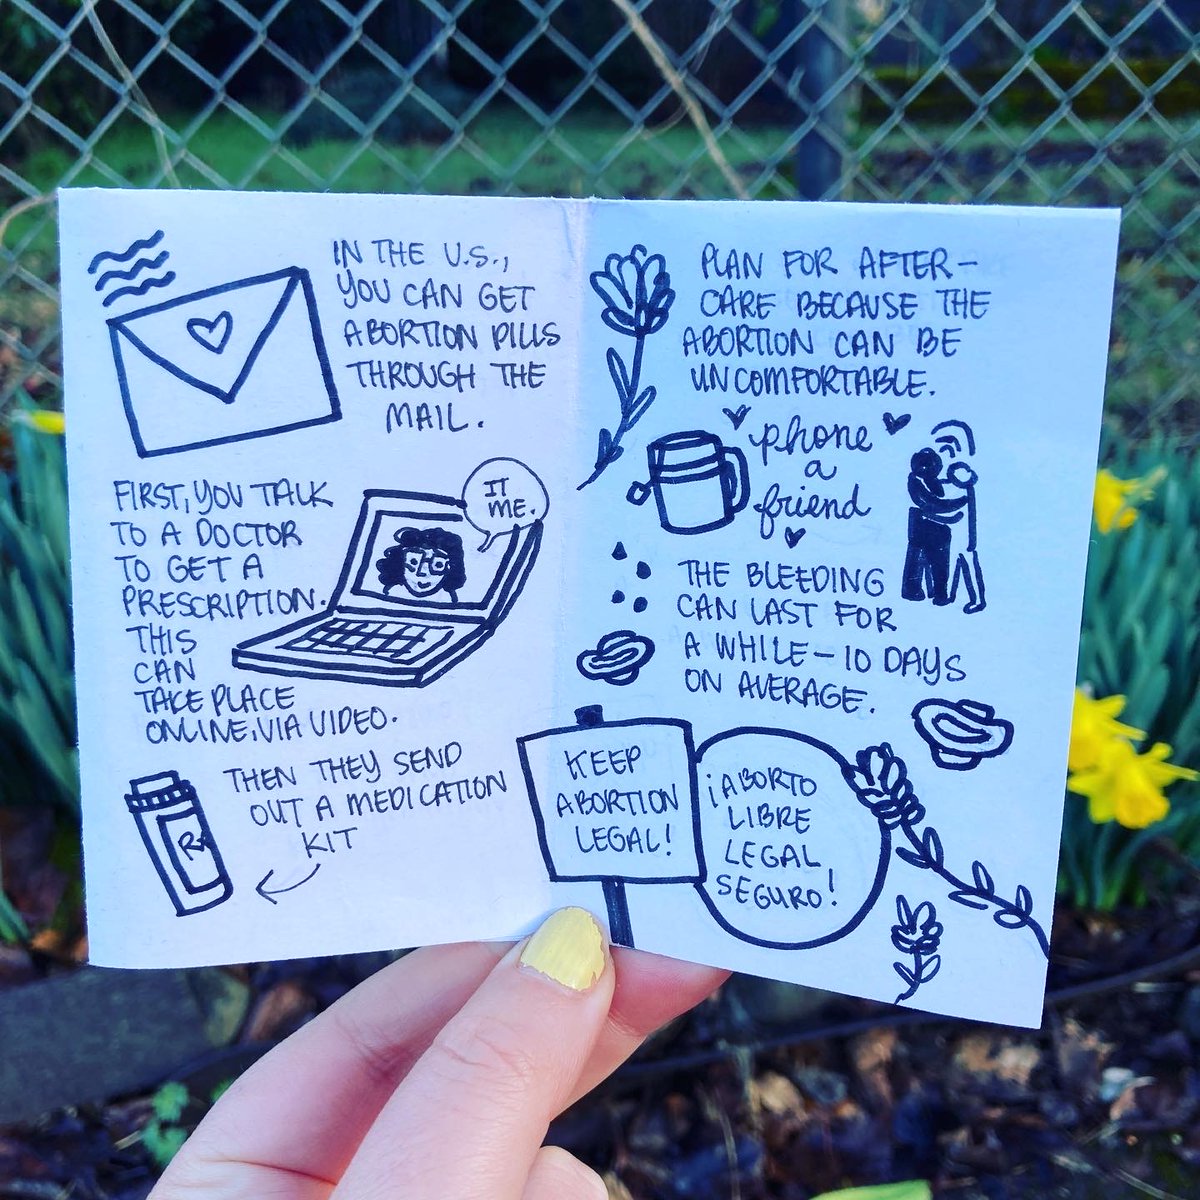 IN THE U.S.,
YOU CAN GET
ABORTION PILLS
THROUGH THE
MAIL.
FIRST, YOU TALK
TO A DOCTOR
TO GET A
PRESCRIPTION.
THIS
CAN
TAKE PLACE
ONLINE, VIA VIDEO.
IT
ME.
THEN THEY SEND
OUT A MEDICATION
KIT
Rx
PLAN FOR AFTER-
CARE BECAUSE THE
ABORTION CAN BE
UNCOMFORTABLE.
phone
a
friend
THE BLEEDING
CAN LAST FOR
A WHILE - 10 DAYS
ON AVERAGE.
KEEP
ABORTION
LEGAL!
¡ABORTO
LIBRE
LEGAL
SEGURO!